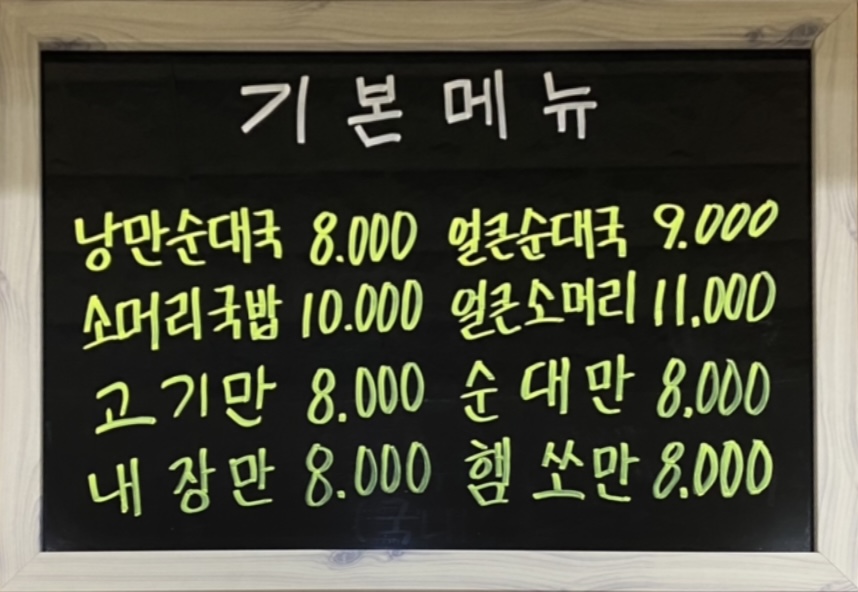 기본메뉴
낭만순대국 8.000 얼큰순대국 9.000
소머리국밥 10.000 얼큰소머리 11.000
고기만 8.000 순대만 8.000
내장만 8.000 햄쏘만 8.000